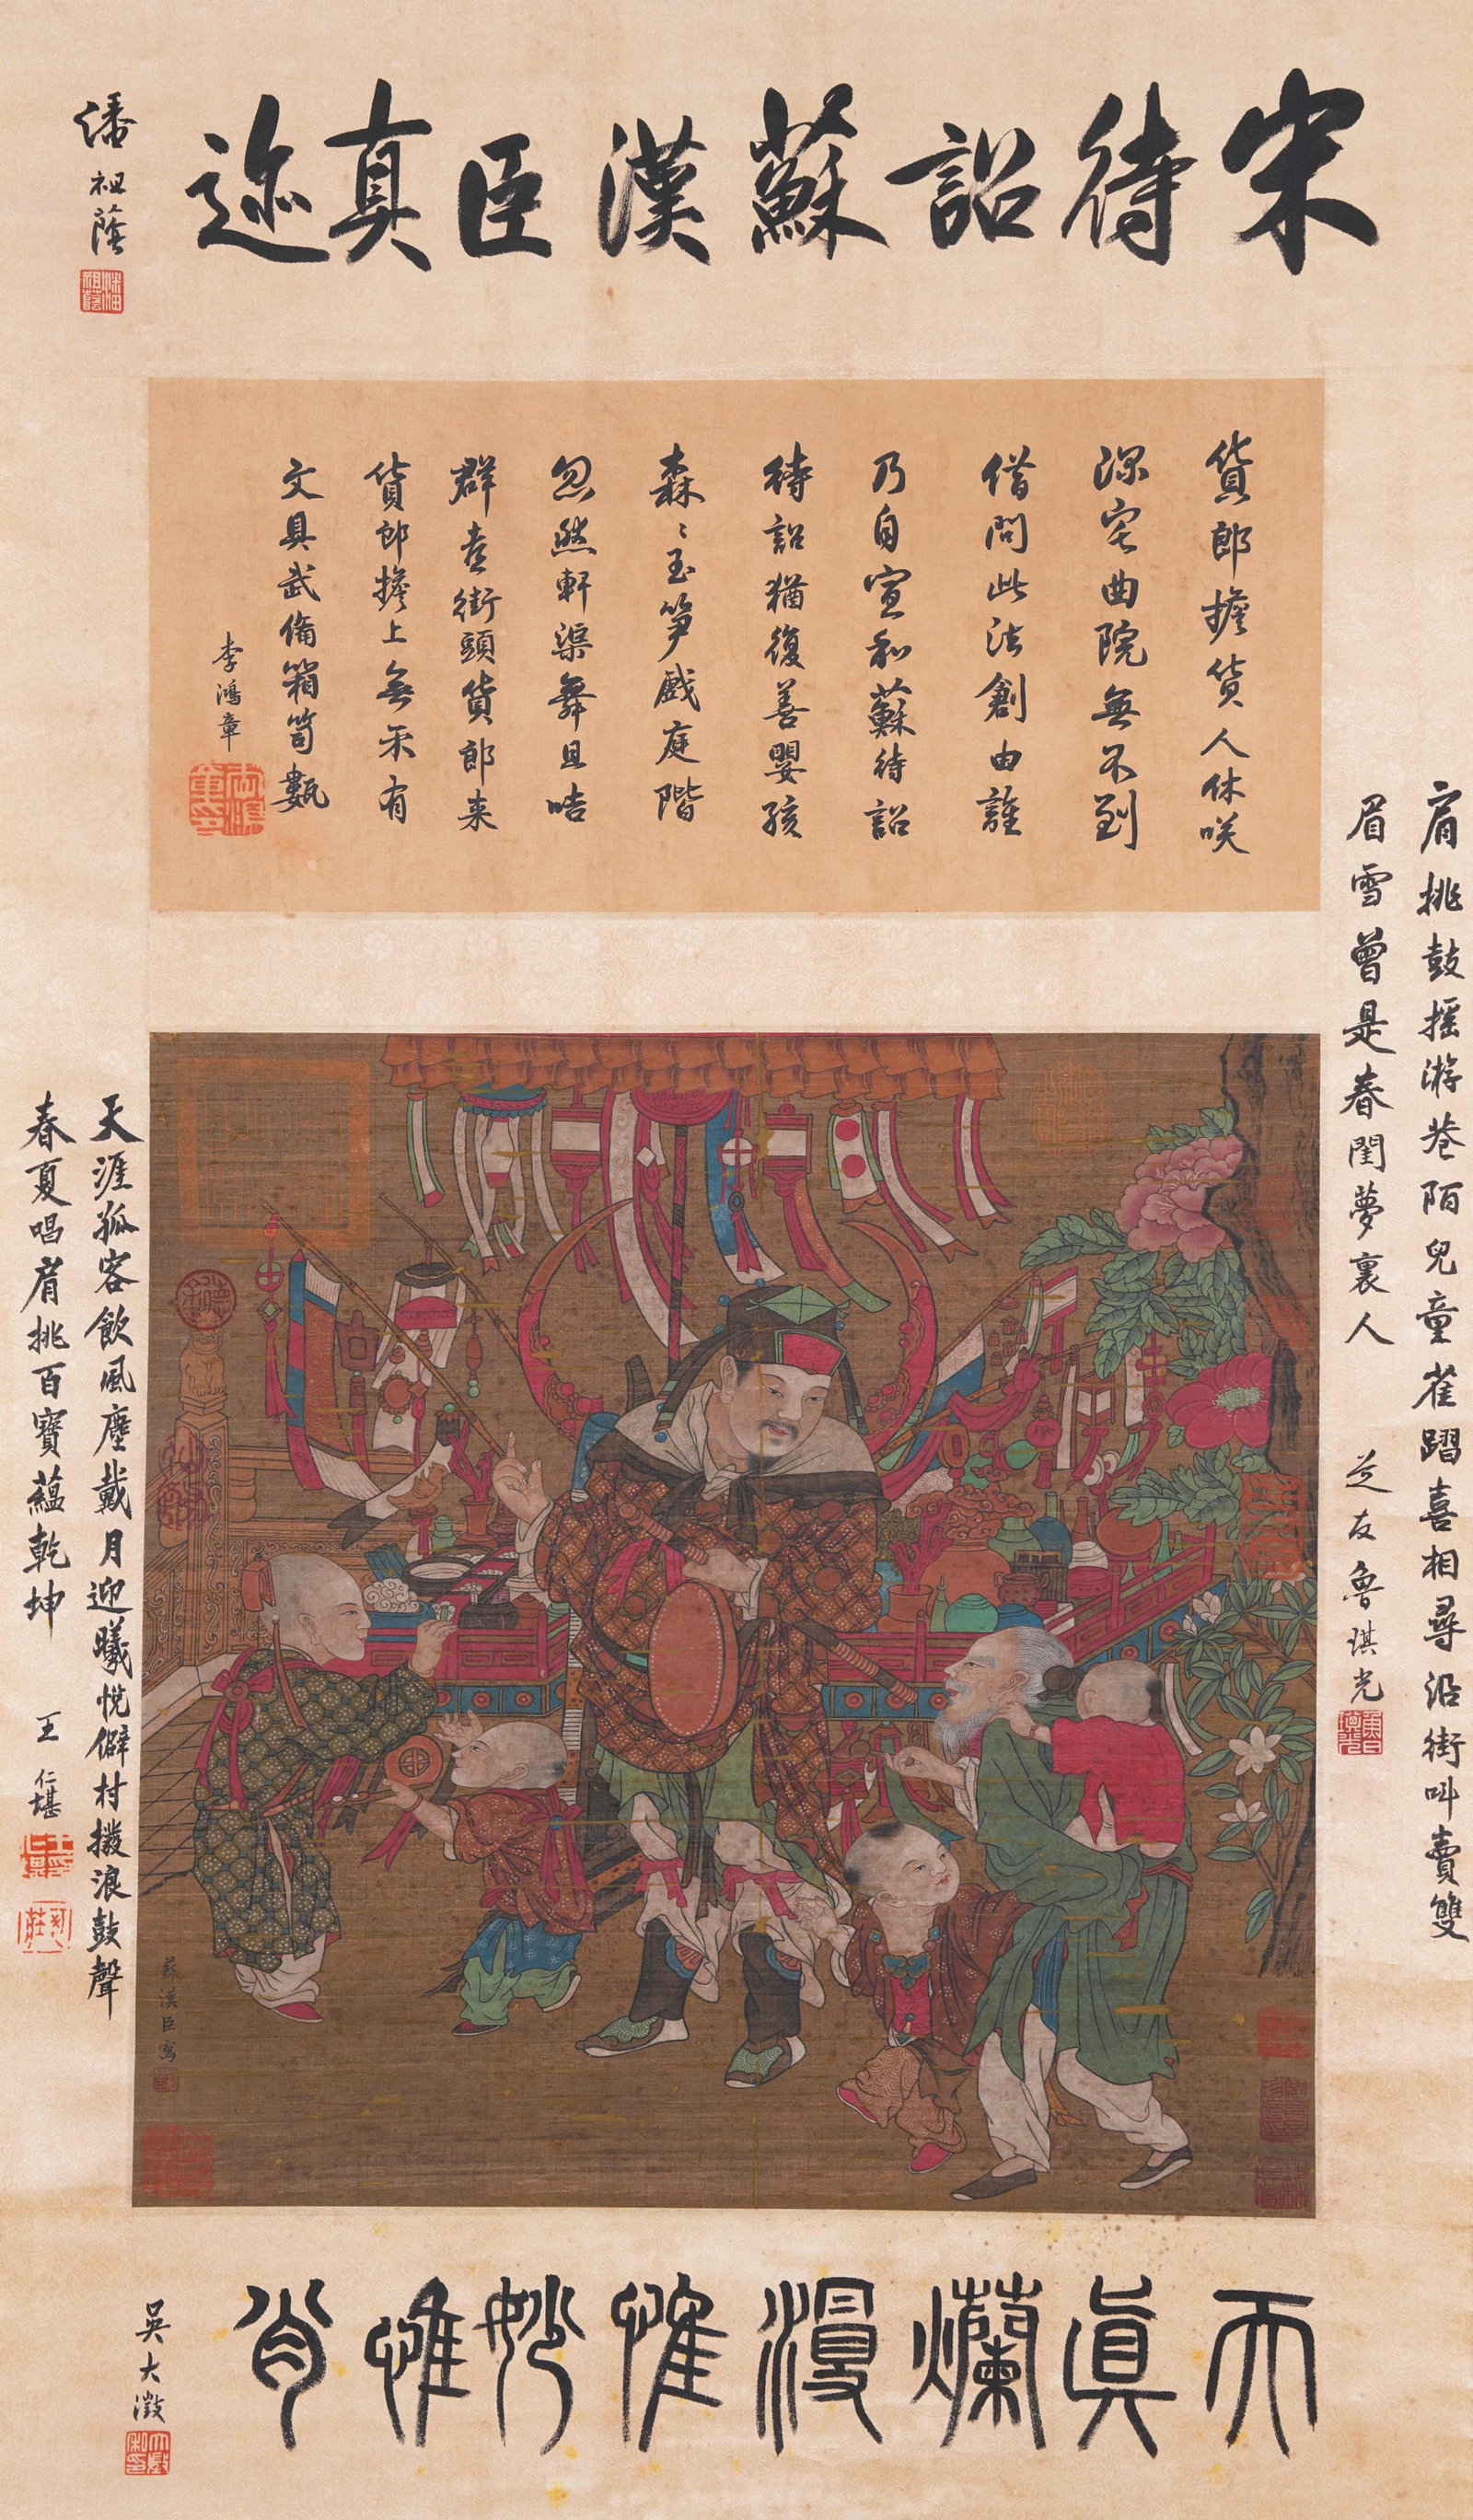 宋待詔蘇漢臣真迹
潘祖蔭
貨郎擔貨人休咲
深宅曲院無不到
借問此法創由誰
乃自宣和蘇待詔
待詔猶復善嬰孩
森〻玉笋戲庭階
忽然軒渠舞且咭
群走街頭貨郎来
貨郎擔上無不有
文具武備箱笥
李鴻章
肩挑鼓摇游巷陌兒童雀躍喜相尋沿街叫賣雙
眉雪曾是春閨夢裏人
芝友魯琪光
天涯孤客飲風塵戴月迎曦悅僻村撥浪鼓聲
春夏唱肩挑百寶蘊乾坤
王仁堪
蘇漢臣寫
天真爛漫惟妙惟肖
吳大澂